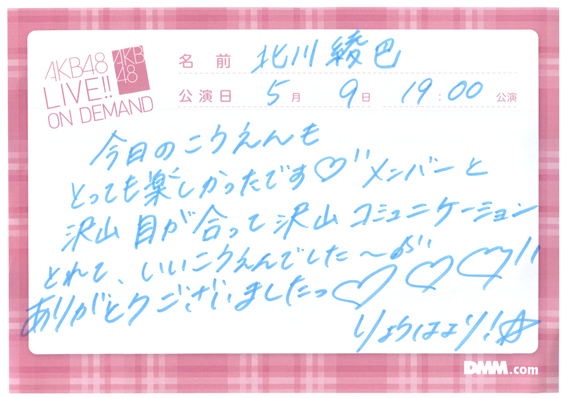 AKB48
LIVE!!
ON DEMAND
AKB
48
名前 北川綾巴
公演日 5月 9日 19:00 公演
今日のこうえんも
とっても楽しかったです♡" メンバーと
沢山 目が合って 沢山 コミュニケーション
とれて、いいこうえんでした〜
ありがとうございましたっ♡♡♡!!
りょうはより!☆
DMM.com